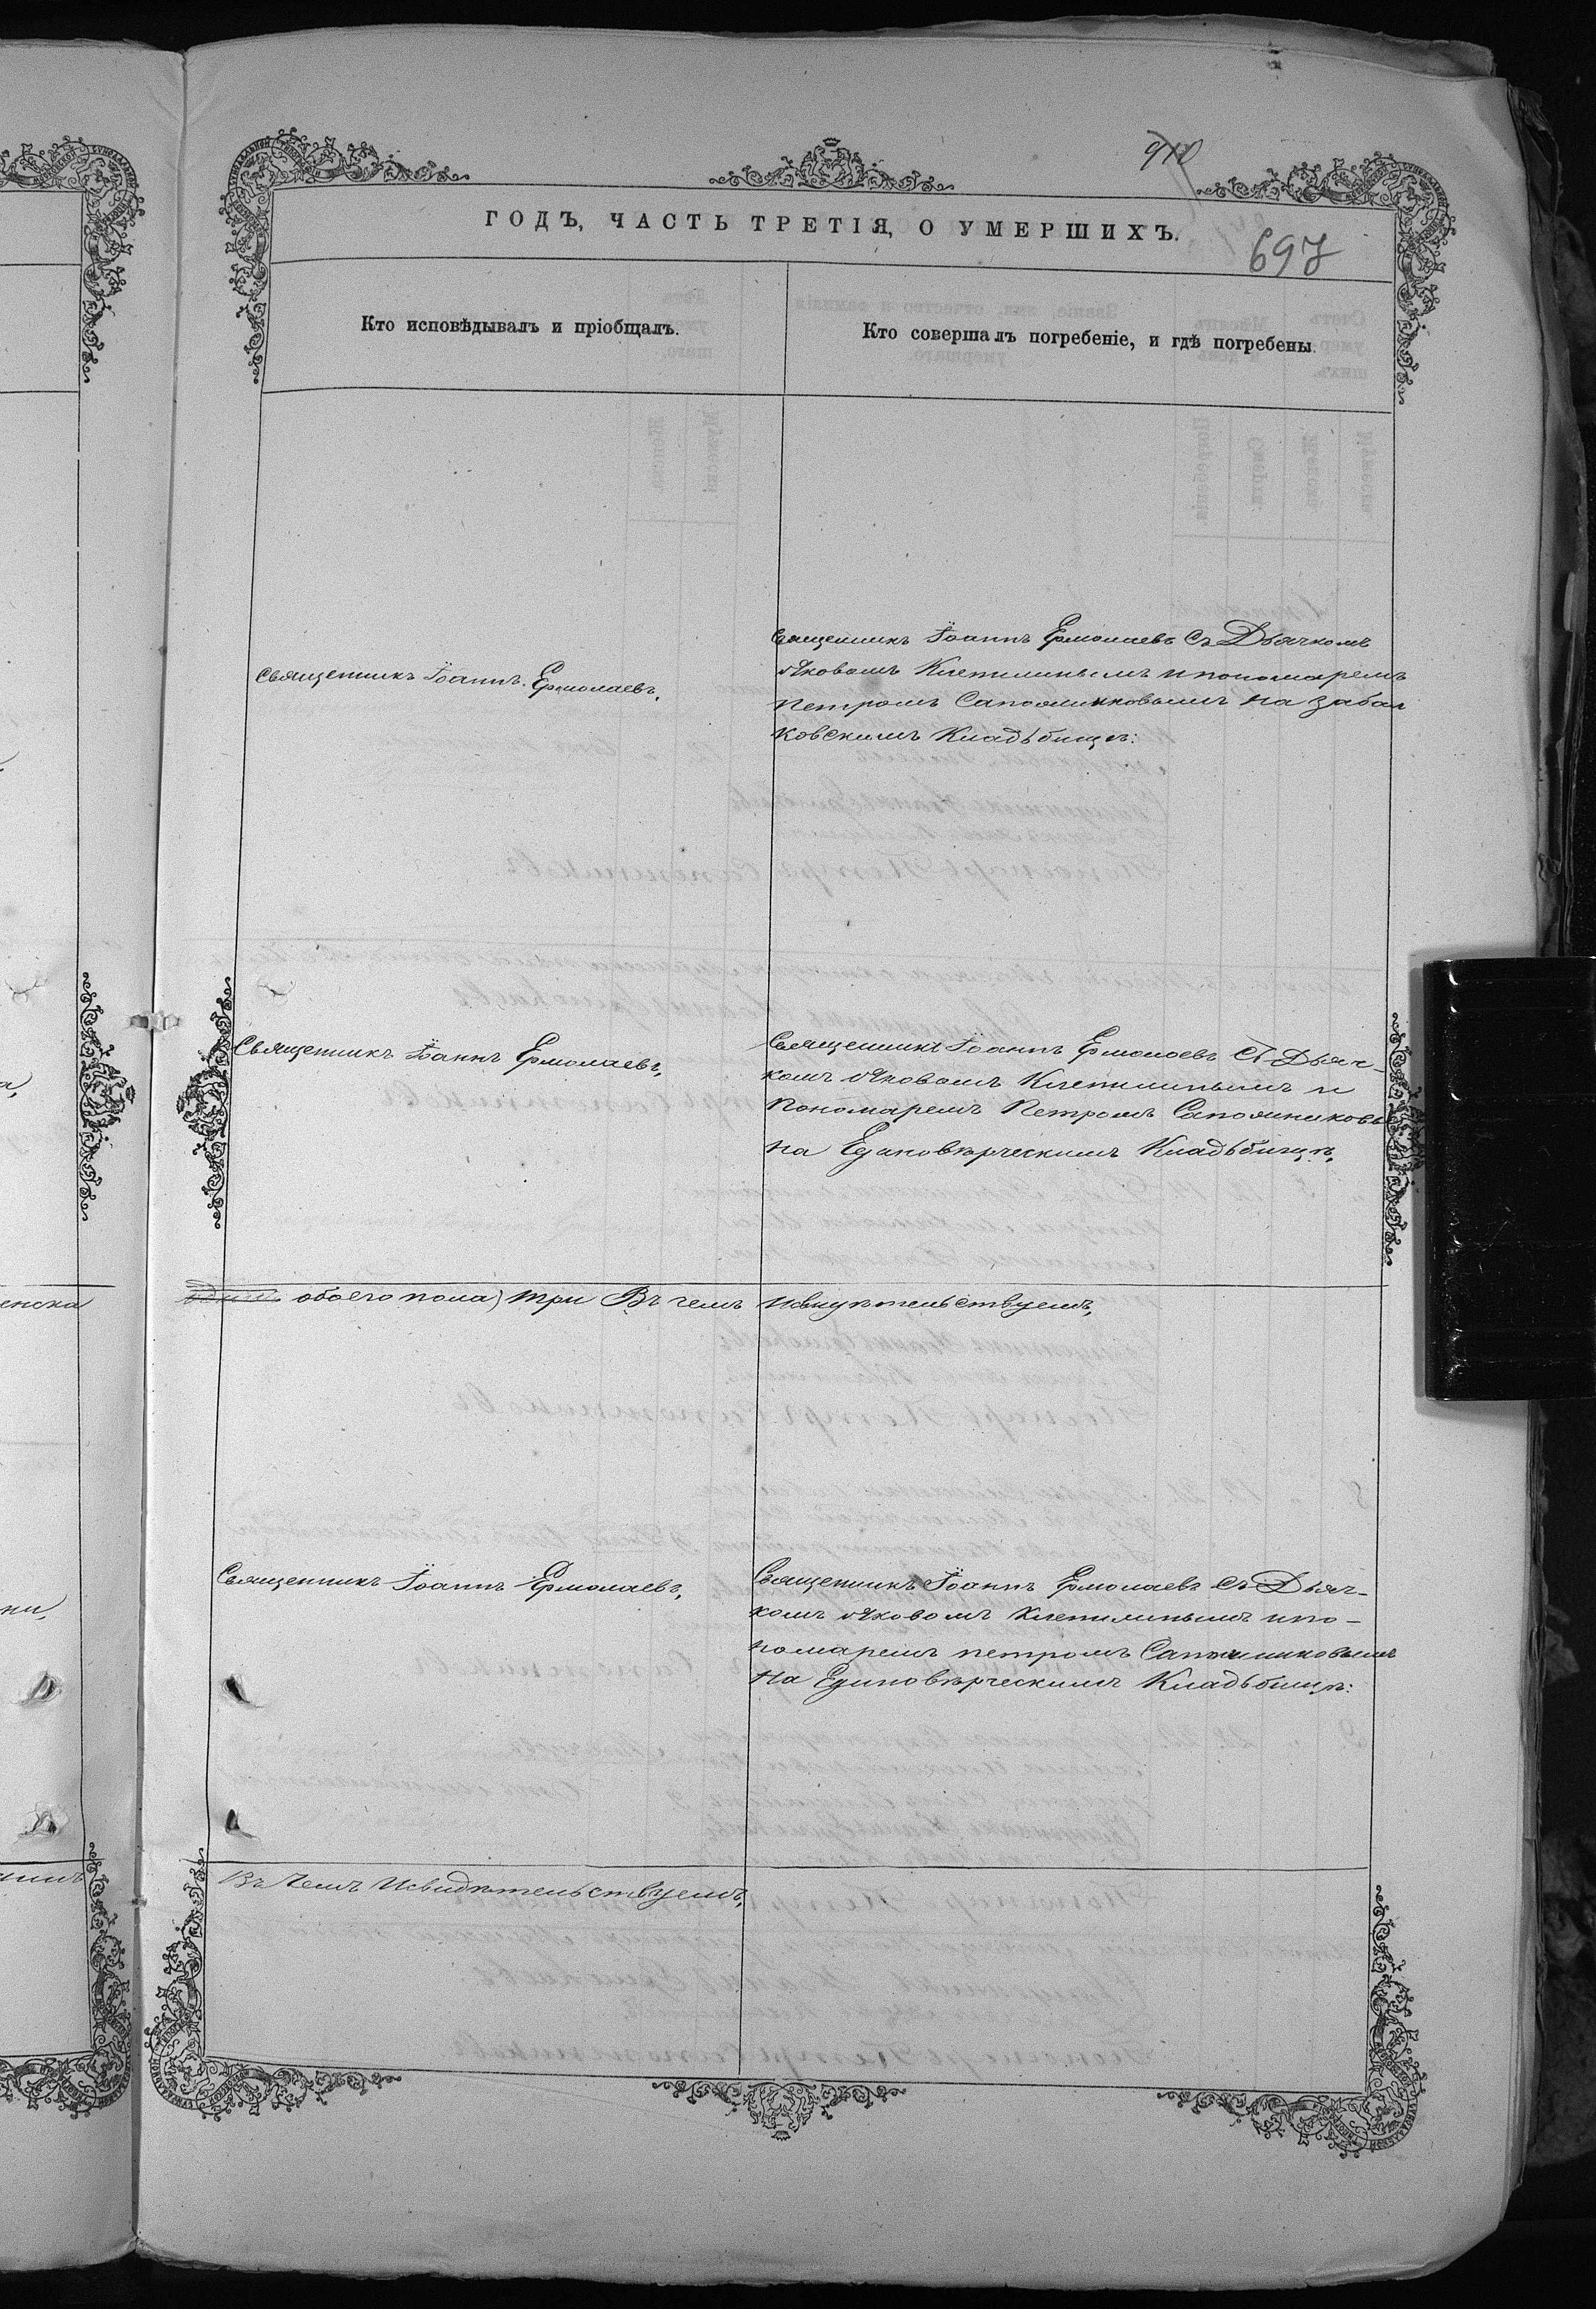 910
ГОДЪ, ЧАСТЬ ТРЕТІЯ, О УМЕРШИХЪ.
697
Кто исповѣдывалъ и пріобщалъ.
Кто совершалъ погребеніе, и гдѣ погребены.
Священникъ Іоаннъ Ермолаевъ,
Священникъ Іоаннъ Ермолаевъ съ Дьячкомъ
Яковомъ Клепининымъ и пономаремъ
Петромъ Сапожниковымъ на забал
ковскимъ Кладьбищѣ:
Священникъ Іоаннъ Ермолаевъ,
Священникъ Іоаннъ Ермолаевъ Съ Дьяч-
комъ Яковомъ Клепининымъ и
Пономаремъ Петромъ Сапожниковы
на Единовѣрческимъ Кладьбищѣ,
енска
обоего пола) три Въ чемъ исвидѣтельствуемъ,
Священникъ Іоаннъ Ермолаевъ,
Священникъ Іоаннъ Ермолаевъ съ Дьяч-
комъ Яковомъ Клепининымъ и по-
номаремъ петромъ Сапожниковымъ
на Единовѣрческимъ Кладьбищѣ:
Въ Чемъ Исвидѣтельствуемъ,